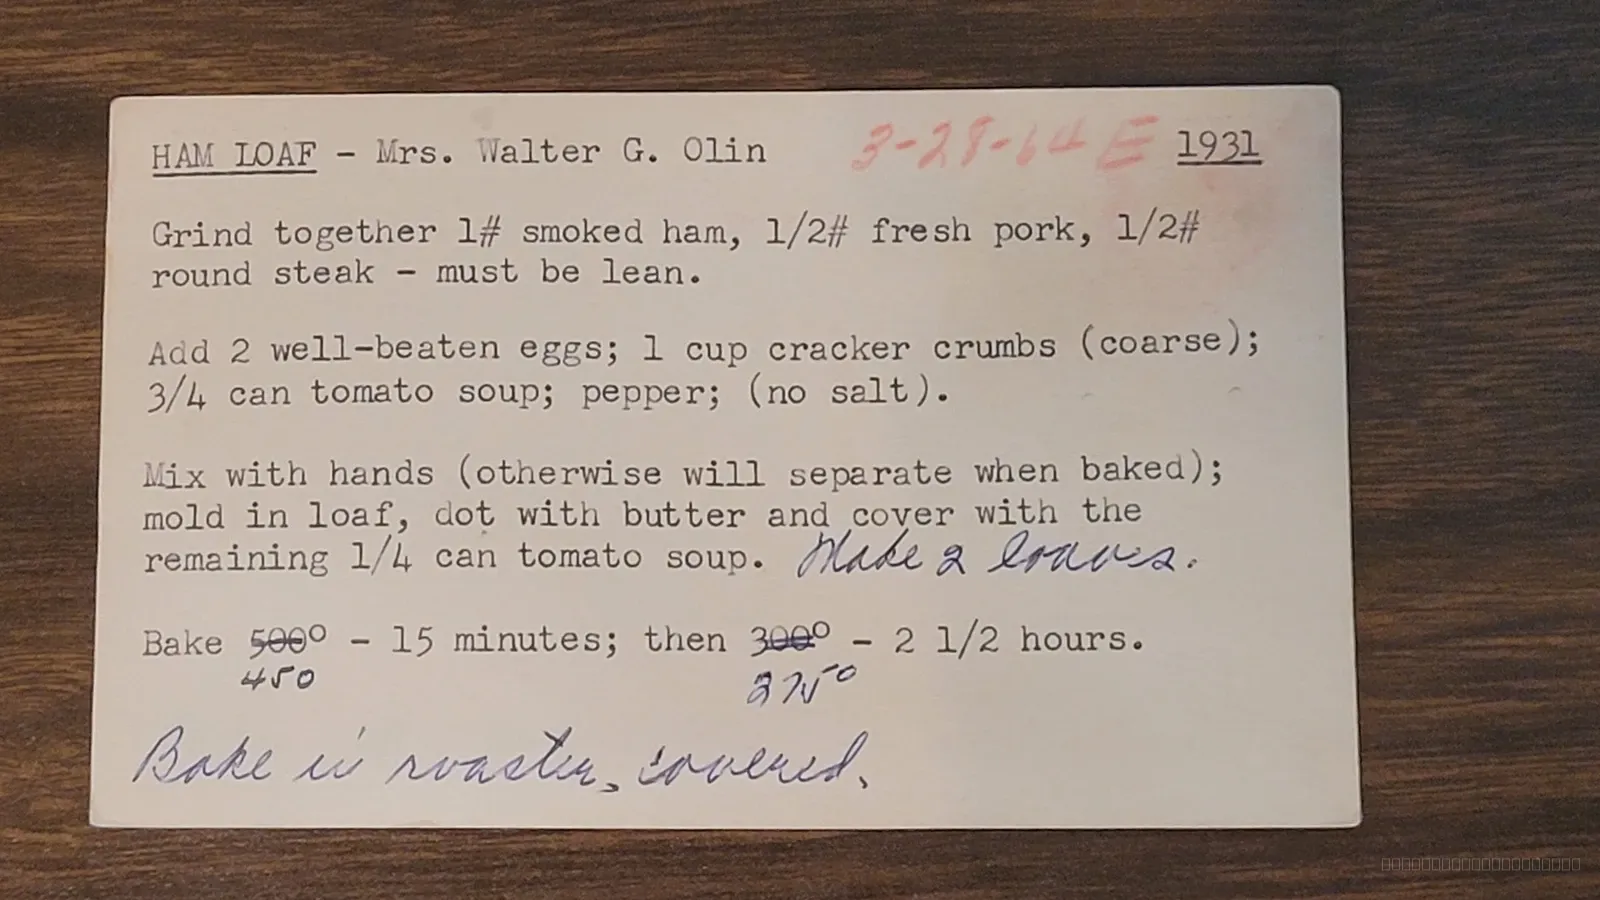 HAM LOAF - Mrs. Walter G. Olin 3-28-64 E 1931
Grind together 1# smoked ham, 1/2# fresh pork, 1/2#
round steak - must be lean.
Add 2 well-beaten eggs; 1 cup cracker crumbs (coarse);
3/4 can tomato soup; pepper; (no salt).
Mix with hands (otherwise will separate when baked);
mold in loaf, dot with butter and cover with the
remaining 1/4 can tomato soup. Make 2 loaves.
Bake 500° - 15 minutes; then 300° - 2 1/2 hours.
450 275°
Bake in roaster, covered.